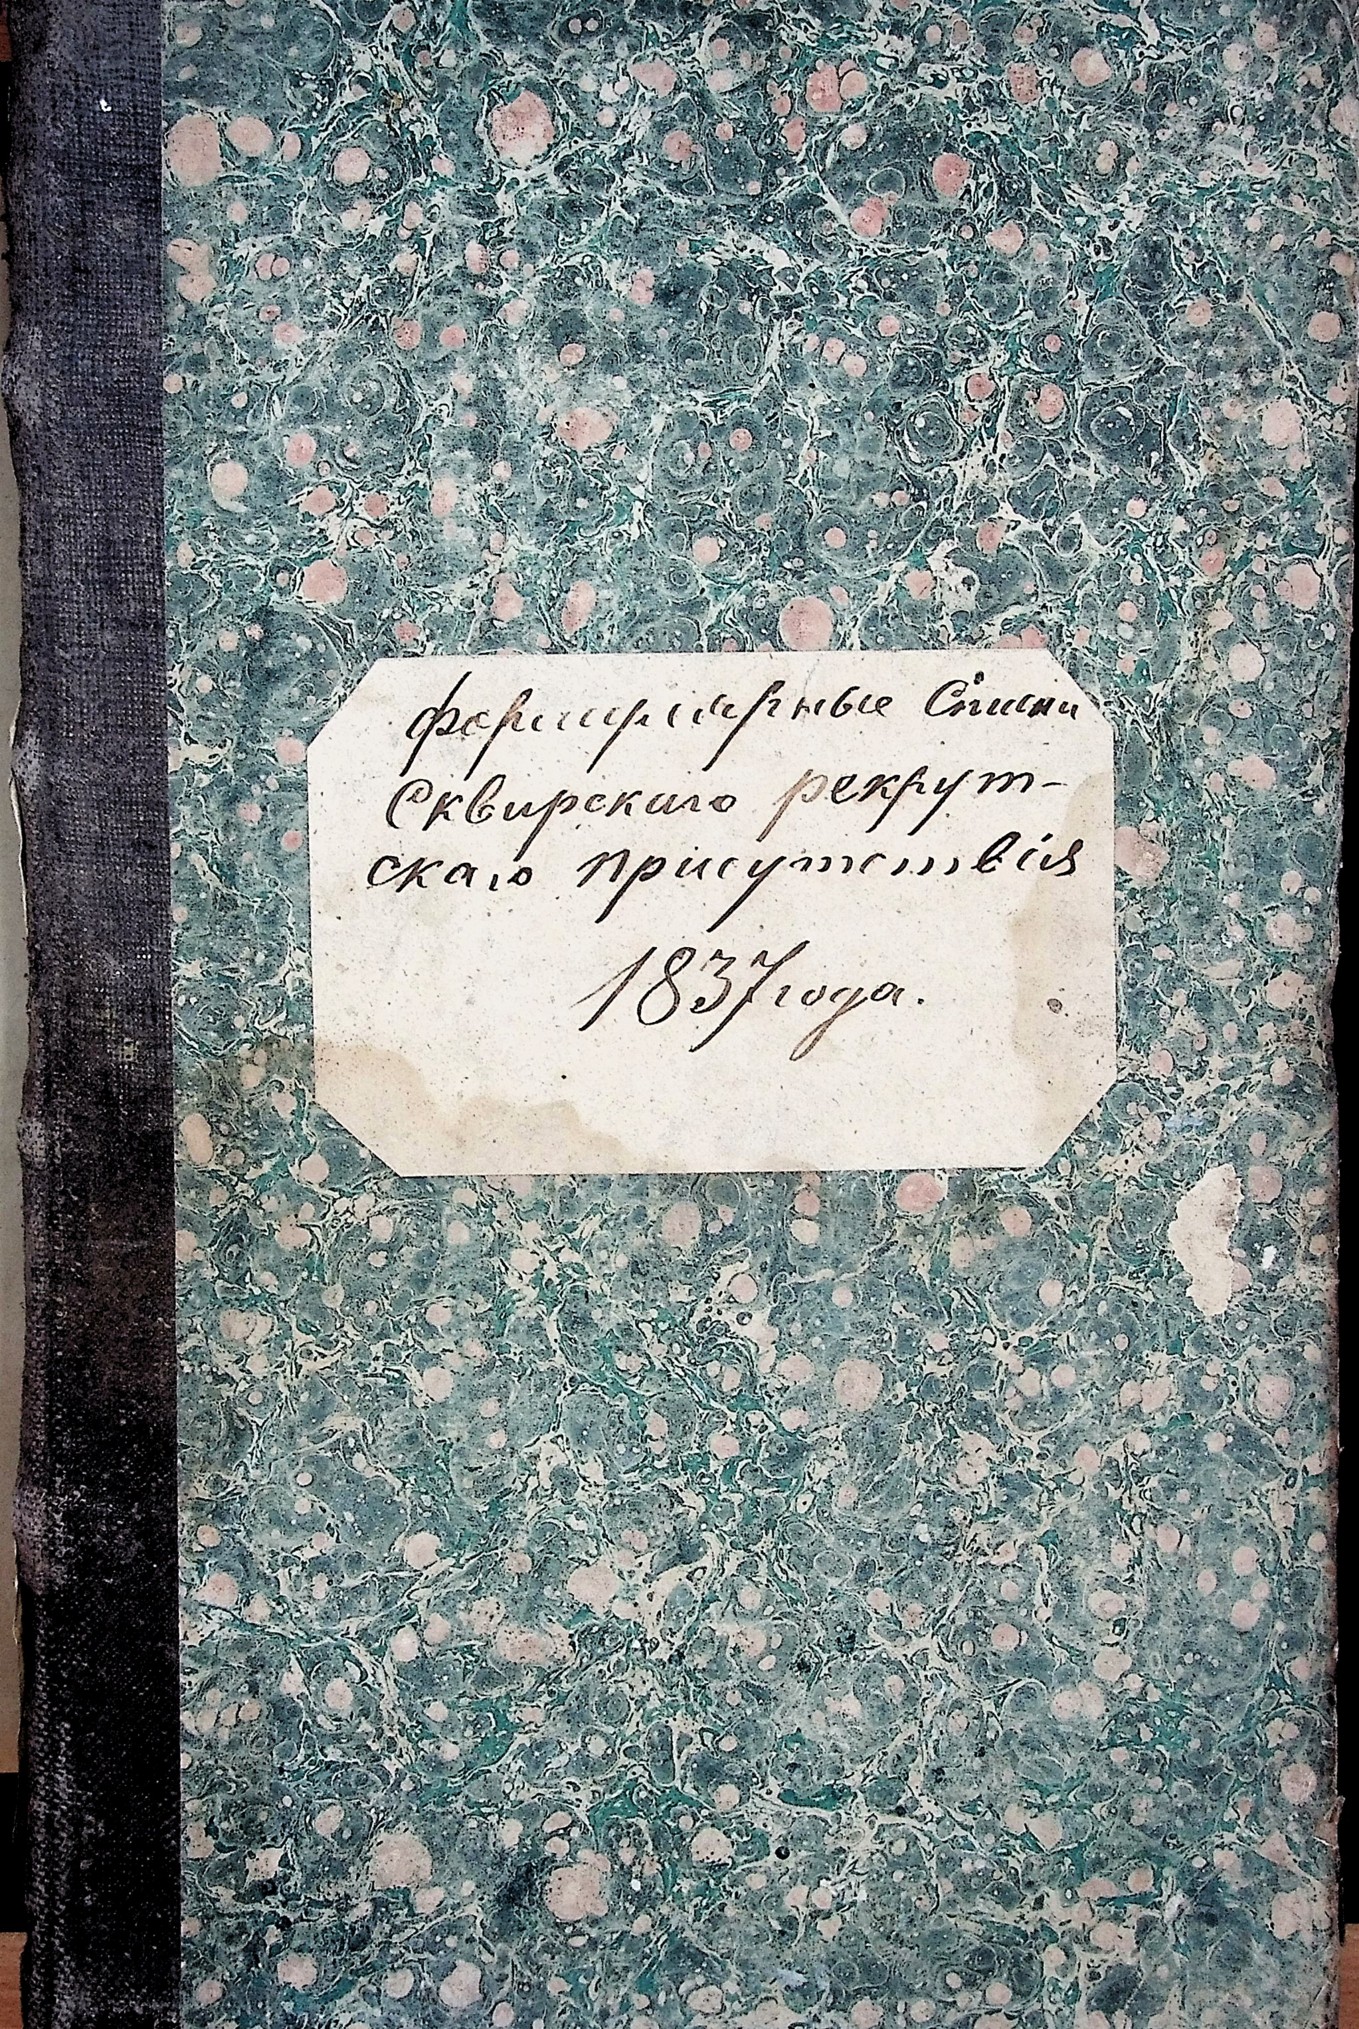 формулярные Списки
Сквирскаго рекрут-
скаго присутствія
1837 года.